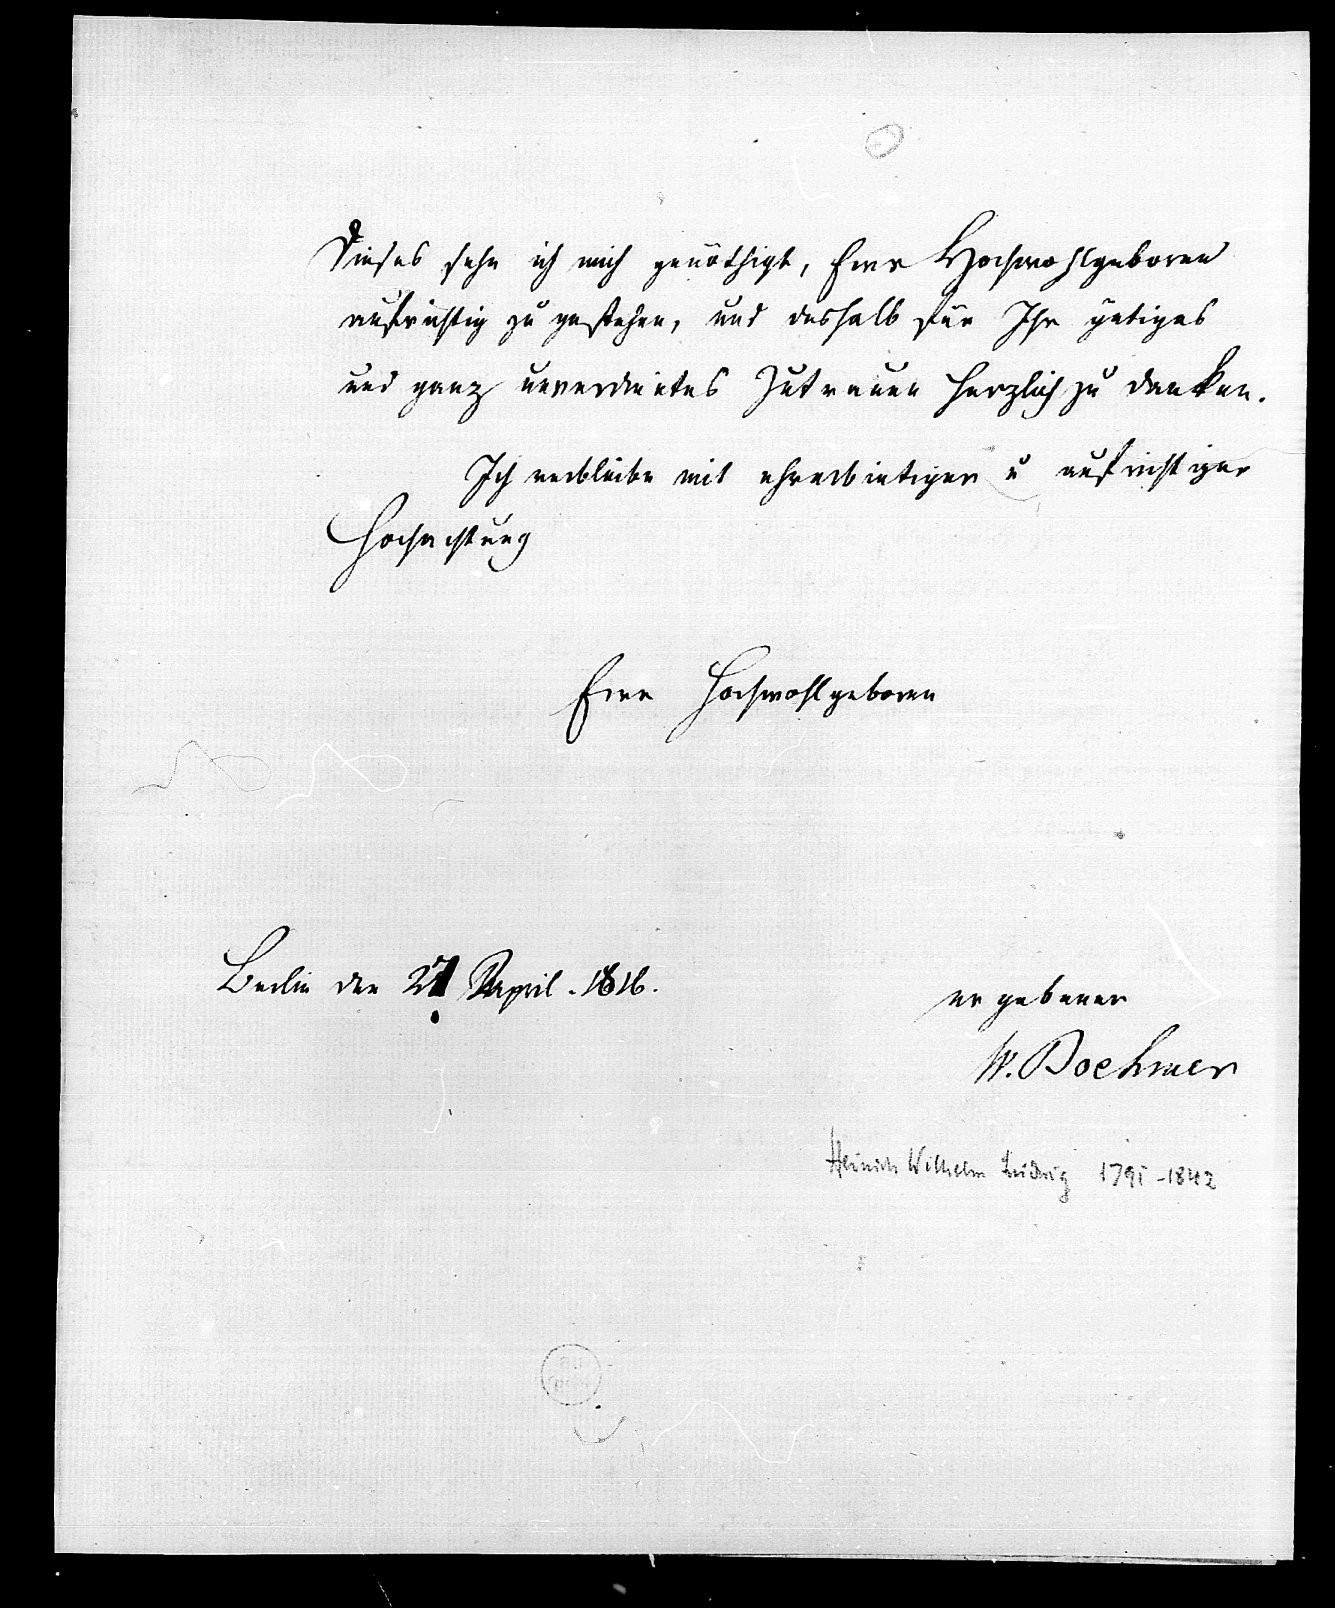 Dieses sehe ich mich genöthigt, Ewr Hochwohlgeboren
aufrichtig zu gestehen, und deshalb für Ihr gütiges
und ganz unverdientes Zutrauen herzlich zu danken.
Ich verbleibe mit ehrerbietiger u aufrichtiger
Hochachtung
Ewr Hochwohlgeboren
Berlin den April. 1816.
ergebener
W. Boehmer
Heinrich Wilhelm Ludwig 1791-1842